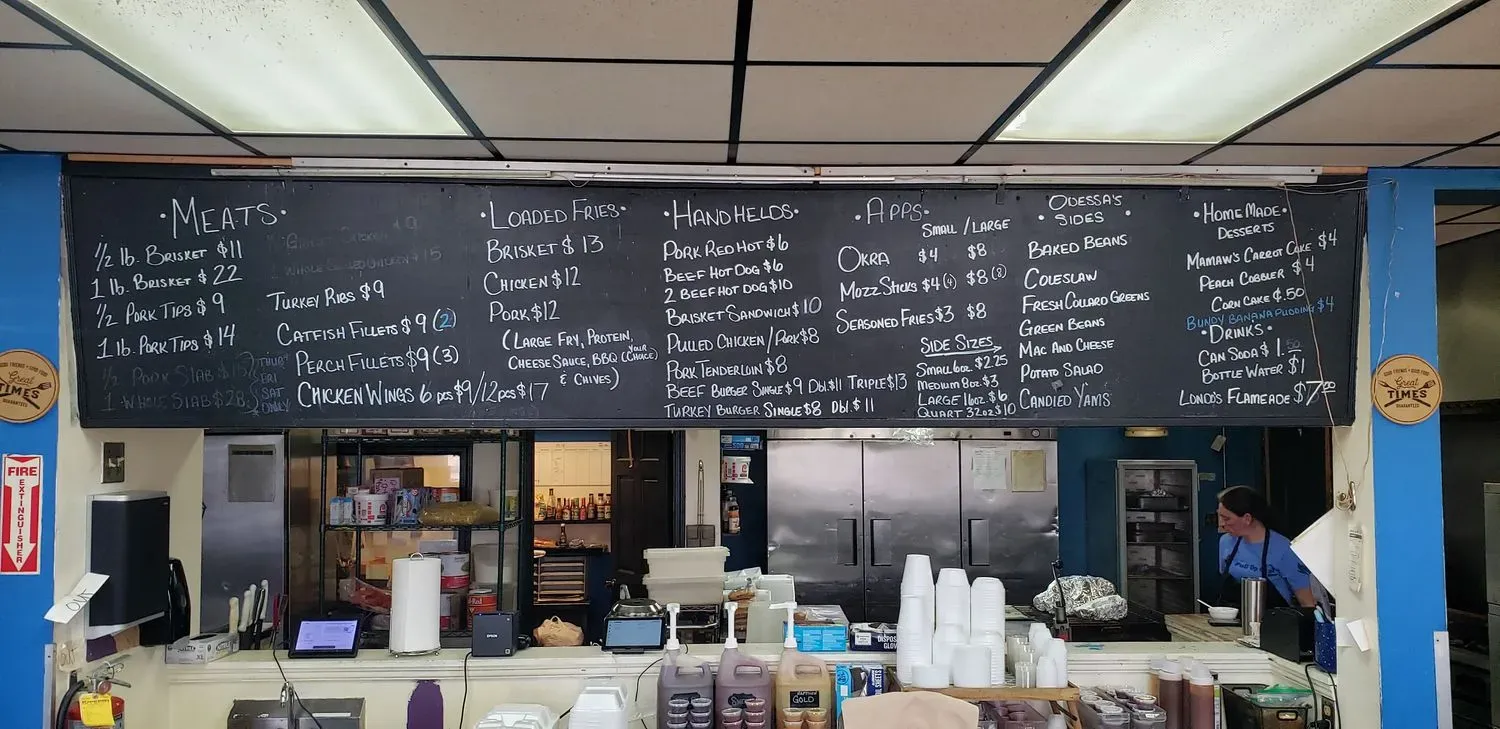 •MEATS•
1/2 lb. BRISKET $11
1 lb. BRISKET $22
1/2 PORK TIPS $9
1 lb. PORK TIPS $14
1/2 PORK SLAB $15
1 WHOLE SLAB $28
THUR
FRI
SAT
ONLY
TURKEY RIBS $9
CATFISH FILLETS $9 (2)
PERCH FILLETS $9 (3)
CHICKEN WINGS 6 pcs $9/12pcs $17
•LOADED FRIES•
BRISKET $13
CHICKEN $12
PORK $12
(LARGE FRY, PROTEIN,
CHEESE SAUCE, BBQ (YOUR CHOICE)
& CHIVES)
•HANDHELDS•
PORK RED HOT $6
BEEF HOT DOG $6
2 BEEF HOT DOG $10
BRISKET SANDWICH $10
PULLED CHICKEN/PORK $8
PORK TENDERLOIN $8
BEEF BURGER SINGLE $9 Dbl $11 TRIPLE $13
TURKEY BURGER SINGLE $8 Dbl. $11
•APPS•
SMALL / LARGE
OKRA $4 $8
MOZZ STICKS $4 (4) $8 (8)
SEASONED FRIES $3 $8
SIDE SIZES
SMALL 6oz. $2.25
MEDIUM 8oz. $3
LARGE 16oz. $6
QUART 32oz $10
•ODESSA'S•
SIDES
BAKED BEANS
COLESLAW
FRESH COLLARD GREENS
GREEN BEANS
MAC AND CHEESE
POTATO SALAD
CANDIED YAMS
•HOMEMADE•
DESSERTS
MAMAW'S CARROT CAKE $4
PEACH COBBLER $4
CORN CAKE $.50
BUNDY BANANA PUDDING $4
•DRINKS•
CAN SODA $1.50
BOTTLE WATER $1
LONDO'S FLAMEADE $7.00
GOOD FRIENDS • GOOD FOOD
Great
TIMES
GUARANTEED
GOOD FRIENDS • GOOD FOOD
Great
TIMES
GUARANTEED
FIRE
EXTINGUISHER
OUT
EPSON
GOLD